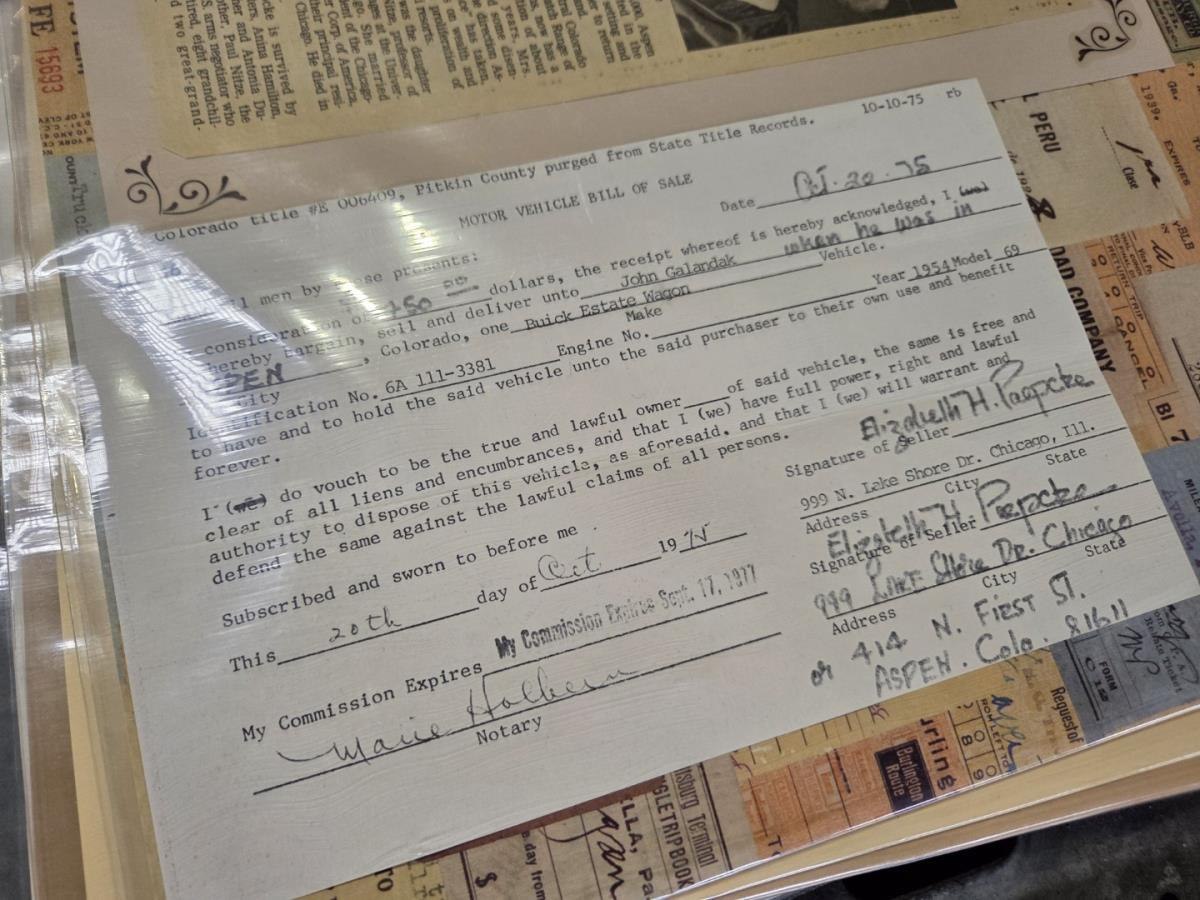 10-10-75 rb
Colorado title #E 006409, Pitkin County purged from State Title Records.
MOTOR VEHICLE BILL OF SALE
Date Oct. 20. 75
all men by these presents:
consideration of 150 00 dollars, the receipt whereof is hereby acknowledged, I (we)
hereby bargain, sell and deliver unto John Galandak when he was in
PEN, Colorado, one Buick Estate Wagon Vehicle.
City Make
Identification No. 6A 111-3381 Engine No. Year 1954 Model 69
to have and to hold the said vehicle unto the said purchaser to their own use and benefit
forever.
I (we) do vouch to be the true and lawful owner of said vehicle, the same is free and
clear of all liens and encumbrances, and that I (we) have full power, right and lawful
authority to dispose of this vehicle, as aforesaid. and that I (we) will warrant and
defend the same against the lawful claims of all persons.
Elizabeth H. Paepcke
Signature of Seller
999 N. Lake Shore Dr. Chicago, Ill.
Address City State
Elizabeth H. Paepcke
Signature of Seller
999 LAKE Shore Dr. Chicago
Address City State
or 414 N. FIRST ST.
ASPEN. Colo. 81611
Subscribed and sworn to before me
This 20th day of Oct 19 75
My Commission Expires My Commission Expires Sept. 17, 1977
Marie Holbein
Notary
FE 15693
cke is survived by
Anina Hamilton,
her and Antonia Du-
other, Paul Nitze, the
S. arms negotiator who
tired, eight grandchil-
d two great-grand-
PERU
1939.
EXPIRES
Class
DAD COMPANY
CANCEL
RETURN TRIP
BI 7
FORM
Request of
Burlington
Route
urling
tsburg Terminal
GLETRIPBOOK
LLA, Pa.
day from
$